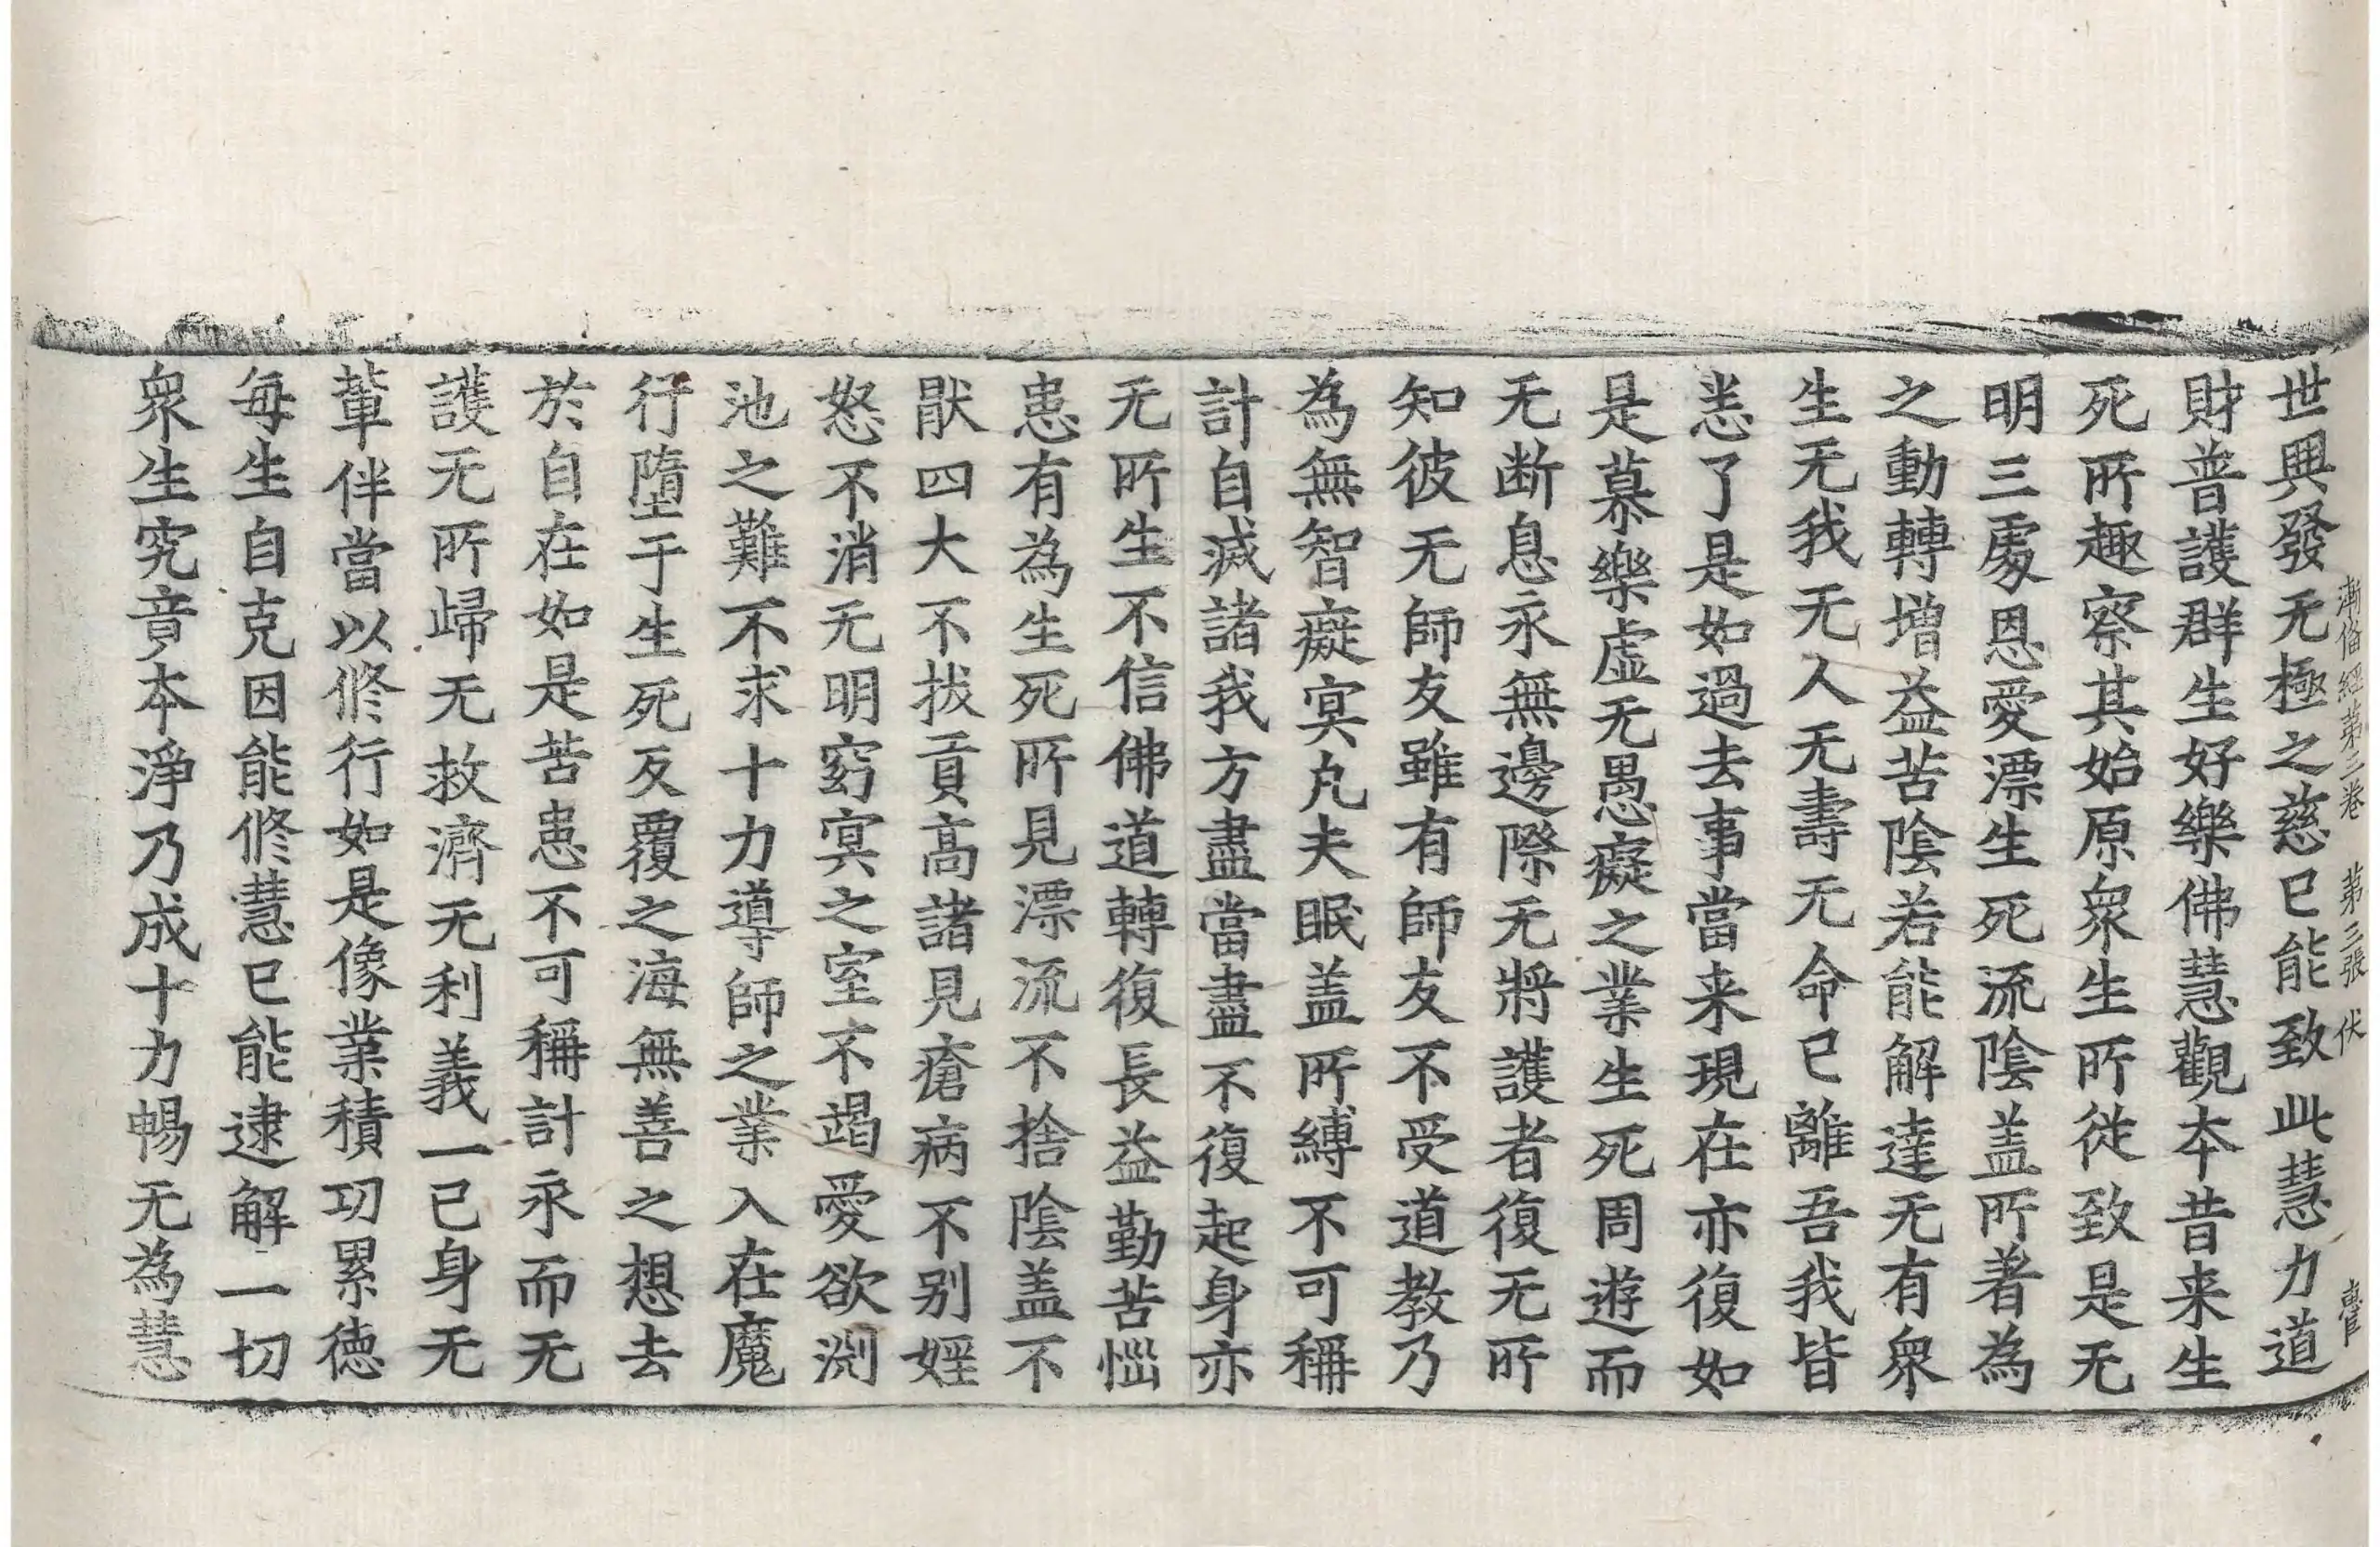 漸俻經第三卷　第三張　伏
世興發无極之慈已能致此慧力道
財普護群生好樂佛慧觀本昔来生
死所趣察其始原衆生所從致是无
明三處恩愛漂生死流陰盖所著為
之動轉增益苦陰若能解達无有衆
生无我无人无壽无命已離吾我皆
悉了是如過去事當来現在亦復如
是慕樂虛无愚癡之業生死周遊而
无断息永無邊際无將護者復无所
知彼无師友雖有師友不受道教乃
為無智癡冥凡夫眠盖所縛不可稱
計自滅諸我方盡當盡不復起身亦
无所生不信佛道轉復長益勤苦惱
患有為生死所見漂流不捨陰盖不
猒四大不拔貢高諸見瘡病不别婬
怒不消无明窈冥之室不竭愛欲渕
池之難不求十力導師之業入在魔
行墮于生死反覆之海無善之想去
於自在如是苦患不可稱計永而无
護无所歸无救濟无利義一已身无
輩伴當以修行如是像業積功累德
每生自克因能修慧已能逮解一切
衆生究竟本淨乃成十力暢无為慧